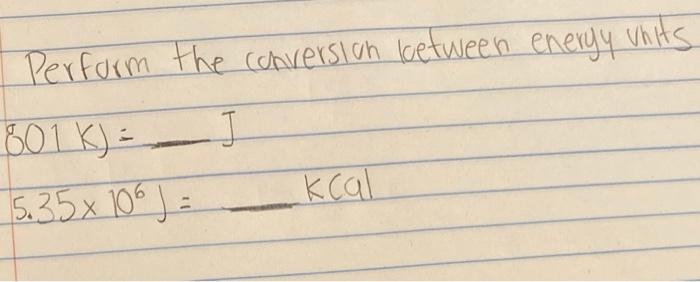 Perform the conversion between energy units
801 KJ = __ J
5.35 x 10⁶ J = __ kcal